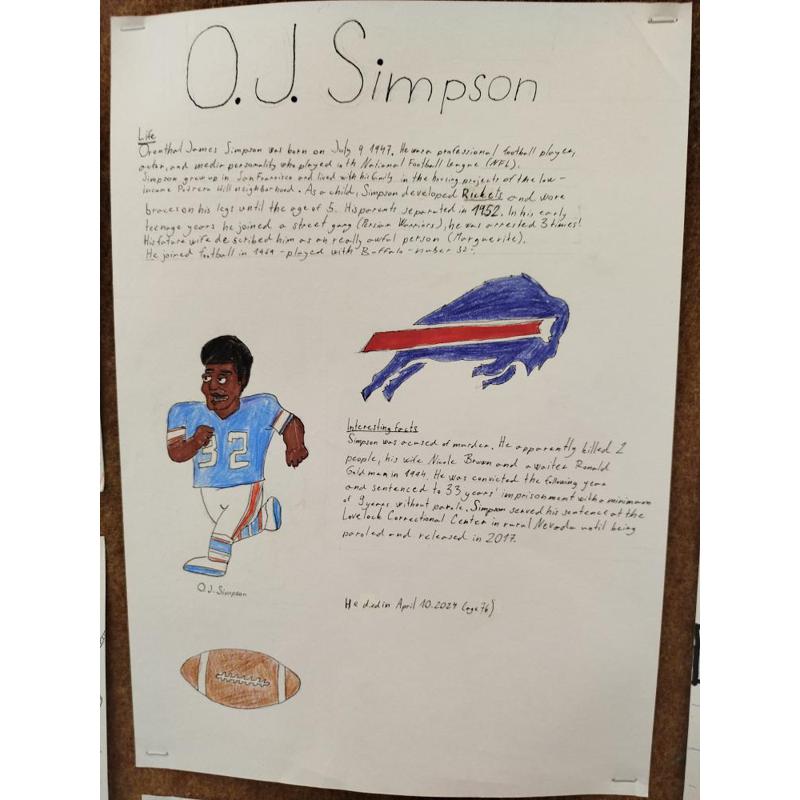 O.J. Simpson
Life
Orenthal James Simpson was born on July 9 1947. He was a professional football player,
actor, and media personality who played in th National Football League (NFL).
Simpson grew up in San Francisco and lived with his family in the housing projects of the low-
income Potrero Hill neighborhood. As a child, Simpson developed Rickets and wore
braces on his legs until the age of 5. His parents separated in 1952. In his early
teenage years he joined a street gang (Persian Warriors), he was arrested 3 times!
His future wife described him as an really awful person (Marguerite).
He joined football in 1969 - played with Buffalo - number 32.
32
Interesting facts
Simpson was acused of murder. He apparently killed 2
people, his wife Nicole Brown and a waiter Ronald
Goldman in 1994. He was convicted the following year
and sentenced to 33 years' imprisonment with a minimum
of 9 years without parole. Simpson served his sentence at the
Lovelock Correctional Center in rural Nevada until being
paroled and released in 2017.
O.J. Simpson
He died in April 10. 2024 (age 76).